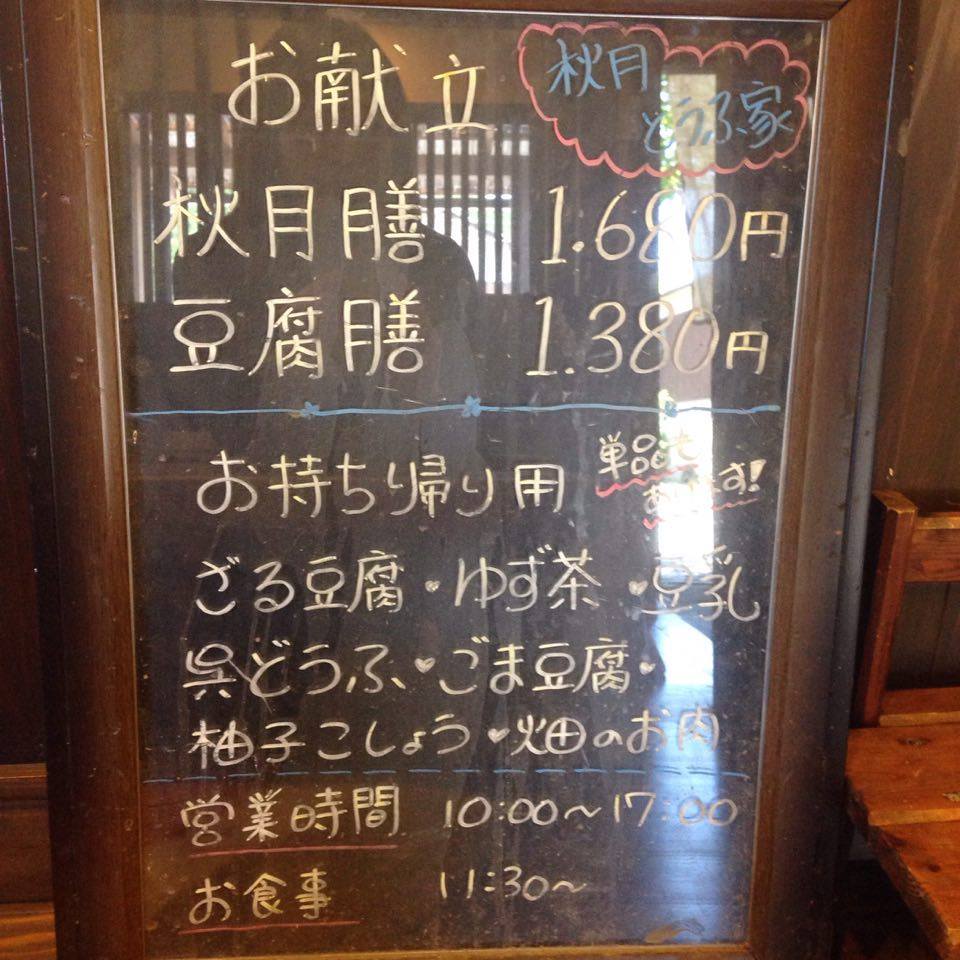 お献立
秋月
とうふ家
秋月膳 1.680円
豆腐膳 1.380円
お持ち帰り用
単品も
あります!
ざる豆腐・ゆず茶・豆乳
呉どうふ・ごま豆腐・
柚子こしょう・畑のお肉
営業時間 10:00~17:00
お食事 11:30~